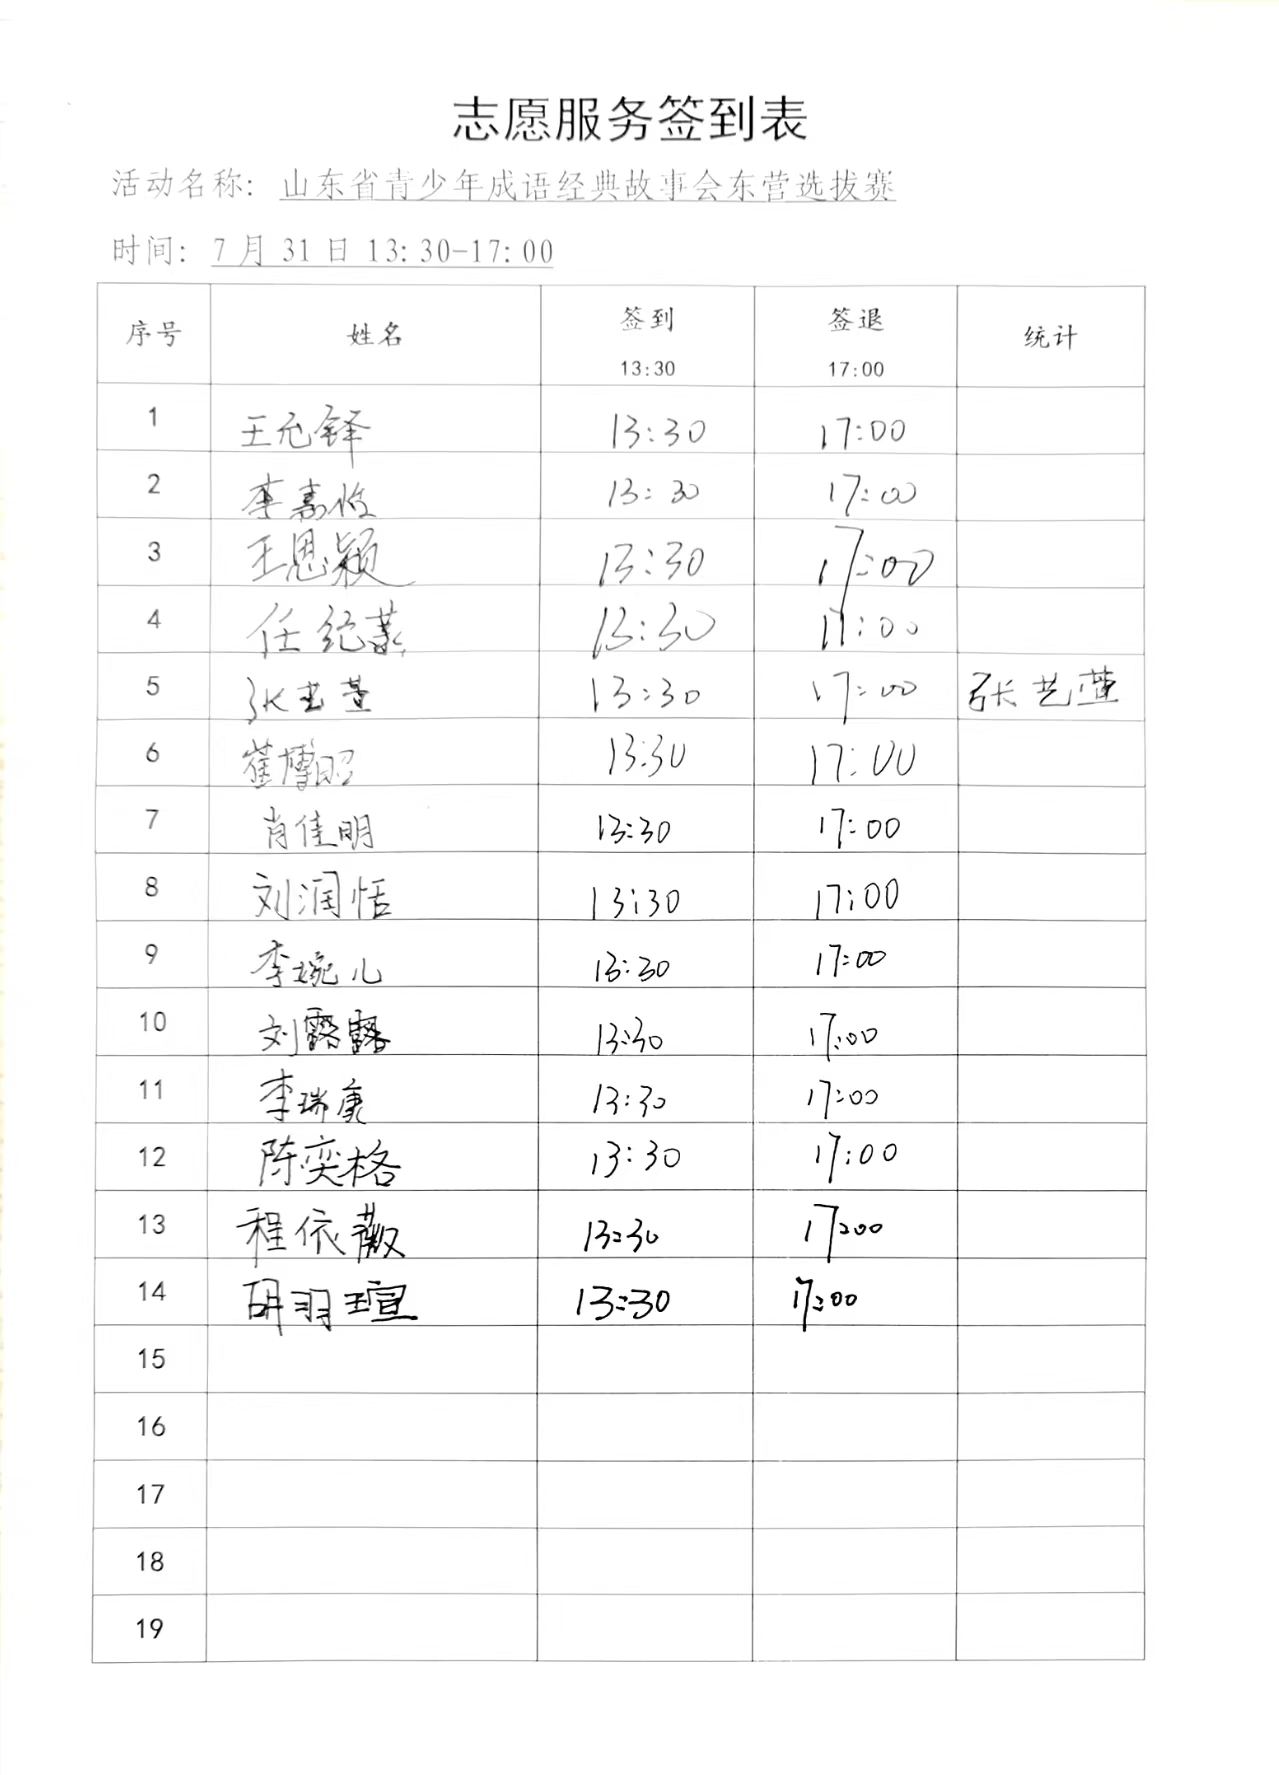 志愿服务签到表
活动名称：山东省青少年成语经典故事会东营选拔赛
时间：7月31日13:30-17:00
序号 姓名 签到 13:30 签退 17:00 统计
1 王允铎 13:30 17:00
2 李嘉悦 13:30 17:00
3 王恩颖 13:30 17:00
4 任纪 13:30 17:00
5 张艺萱 13:30 17:00 张艺萱
6 崔博昭 13:30 17:00
7 肖佳明 13:30 17:00
8 刘润恬 13:30 17:00
9 李婉儿 13:30 17:00
10 刘露露 13:30 17:00
11 李瑞庚 13:30 17:00
12 陈奕格 13:30 17:00
13 程依薇 13:30 17:00
14 胡羽瑄 13:30 17:00
15
16
17
18
19